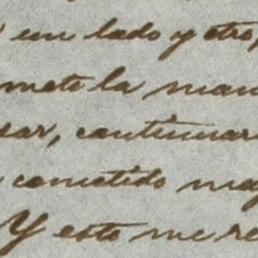 un lado y otro,
mete la man
sar, continuar
cometido may
Y esto me re